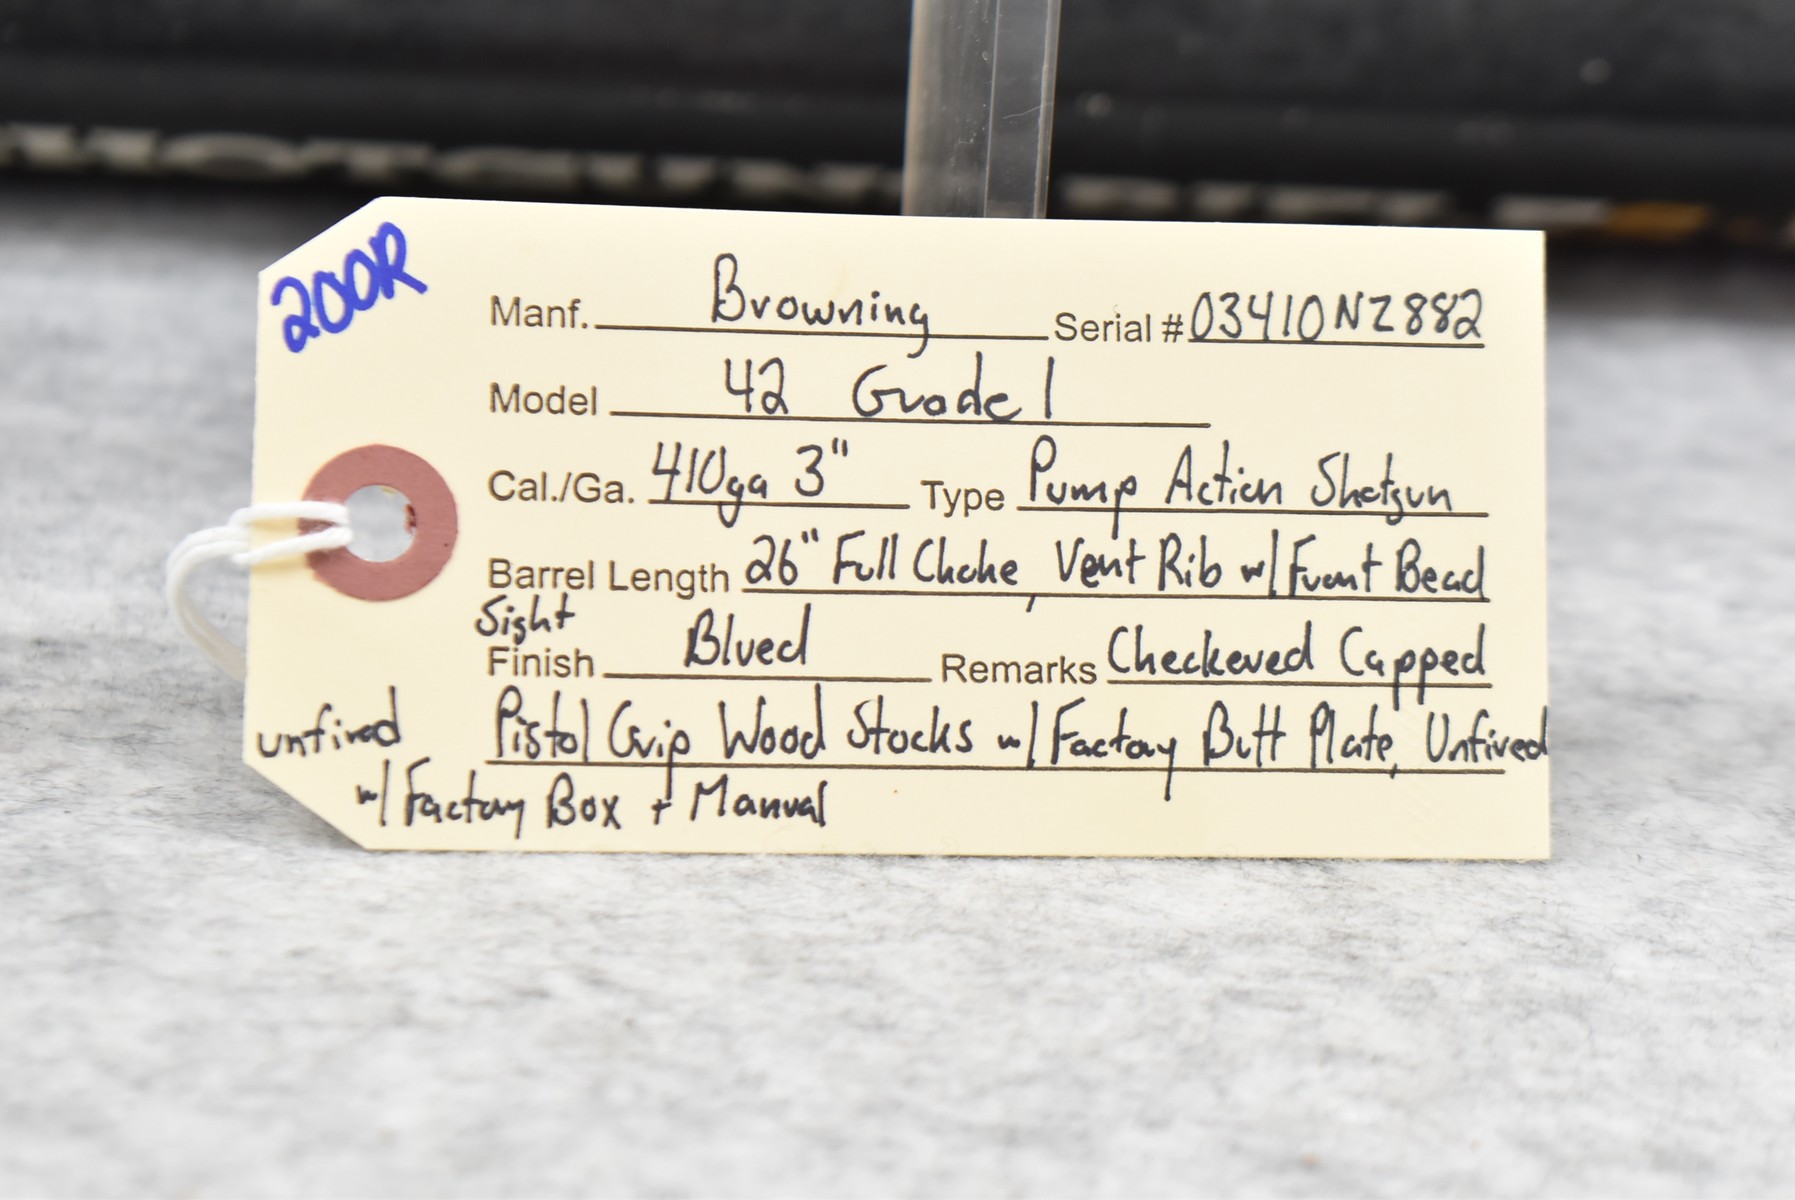 200R
Manf. Browning Serial # 03410NZ882
Model 42 Grade 1
Cal./Ga. 410ga 3" Type Pump Action Shotgun
Barrel Length 26" Full Choke, Vent Rib w/ Front Bead
Sight
Finish Blued Remarks Checkered Capped
Pistol Grip Wood Stocks w/ Factory Butt Plate, Unfired
unfired
w/ Factory Box + Manual